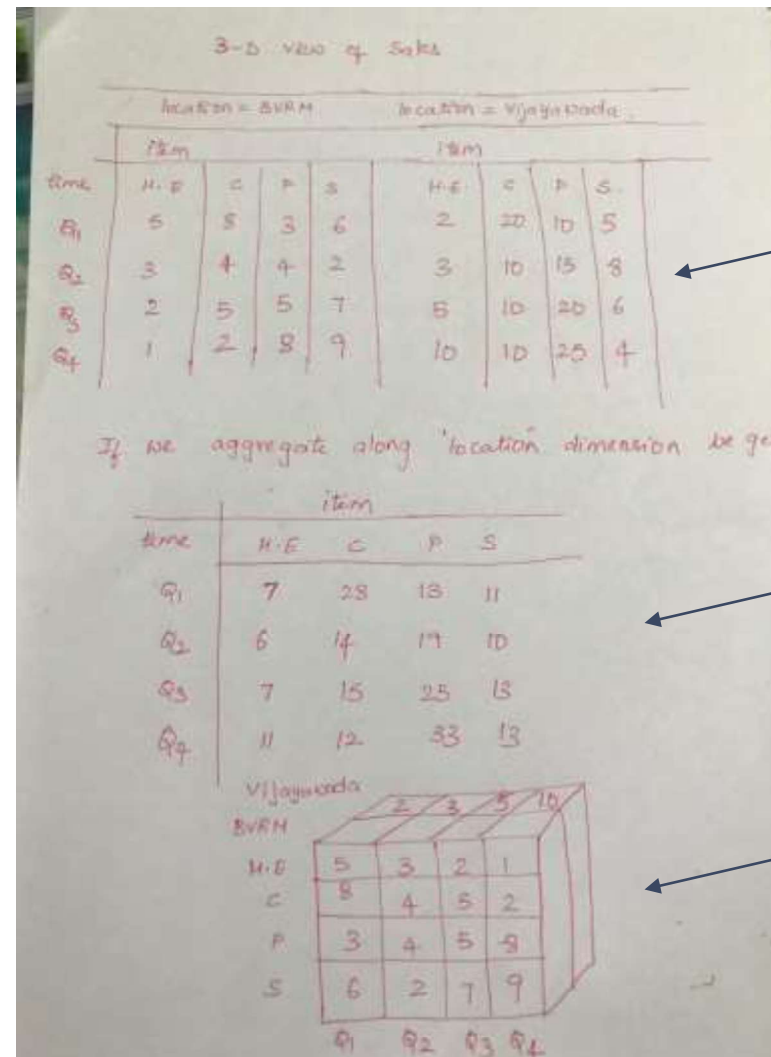 3-D view of Sales
location = BVRM location = Vijayawada
item item
time H.E C P S H.E C P S.
Q1 5 8 3 6 2 20 10 5
Q2 3 4 4 2 3 10 15 8
Q3 2 5 5 7 5 10 20 6
Q4 1 2 8 9 10 10 25 4
If we aggregate along 'location dimension be ge
item
time H.E C P S
Q1 7 28 13 11
Q2 6 14 19 10
Q3 7 15 25 13
Q4 11 12 33 13
Vijayawada 2 3 5 10
BVRM
H.E 5 3 2 1
C 8 4 5 2
P 3 4 5 8
S 6 2 7 9
Q1 Q2 Q3 Q4